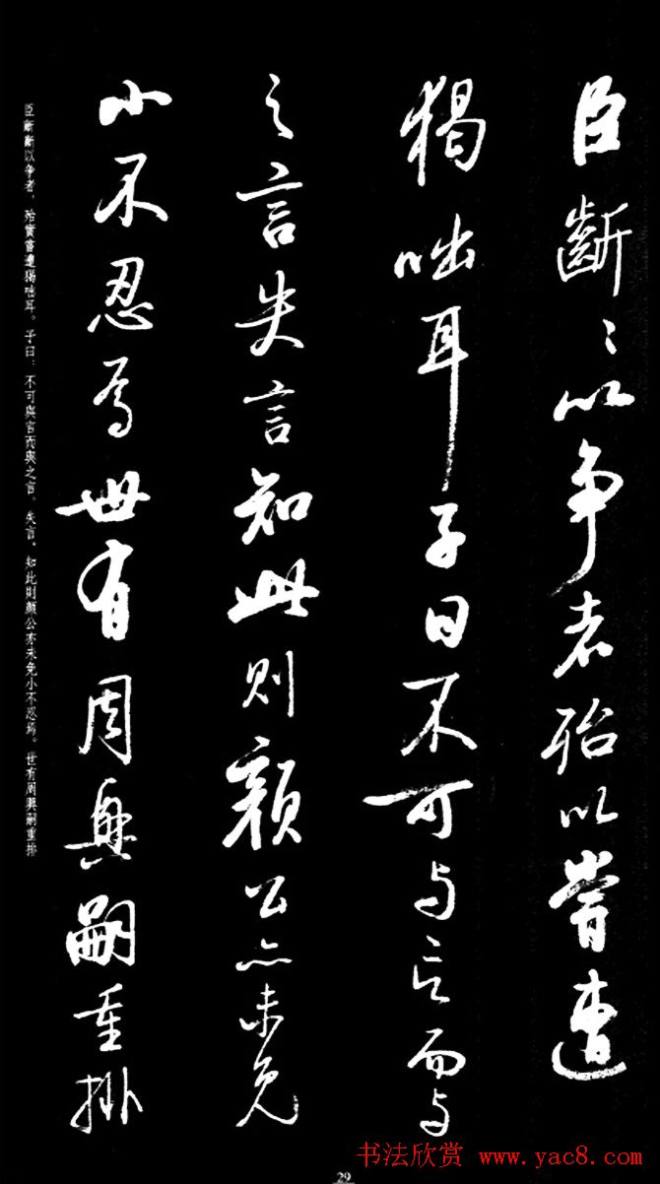 臣齗〻以争者殆以嘗遭
猲咄耳子曰不可与言而与
之言失言知此则颜公亦未免
小不忍焉世有周興嗣重排
臣齗齗以争者，殆實嘗遭猲咄耳。子曰：不可與言而與之言，失言。知此則顏公亦未免小不忍焉。世有周興嗣重排
书法欣赏 www.yac8.com
29